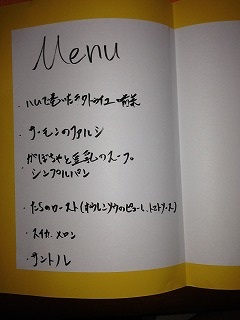 Menu
・ハムで巻いたラタトゥイユ 前菜
・サーモンのファルシ
・かぼちゃと豆乳のスープ。
シンプルパン
・たらのロースト(ホウレンソウのピューレ、トマトソース)
・スイカ、メロン
・サントル